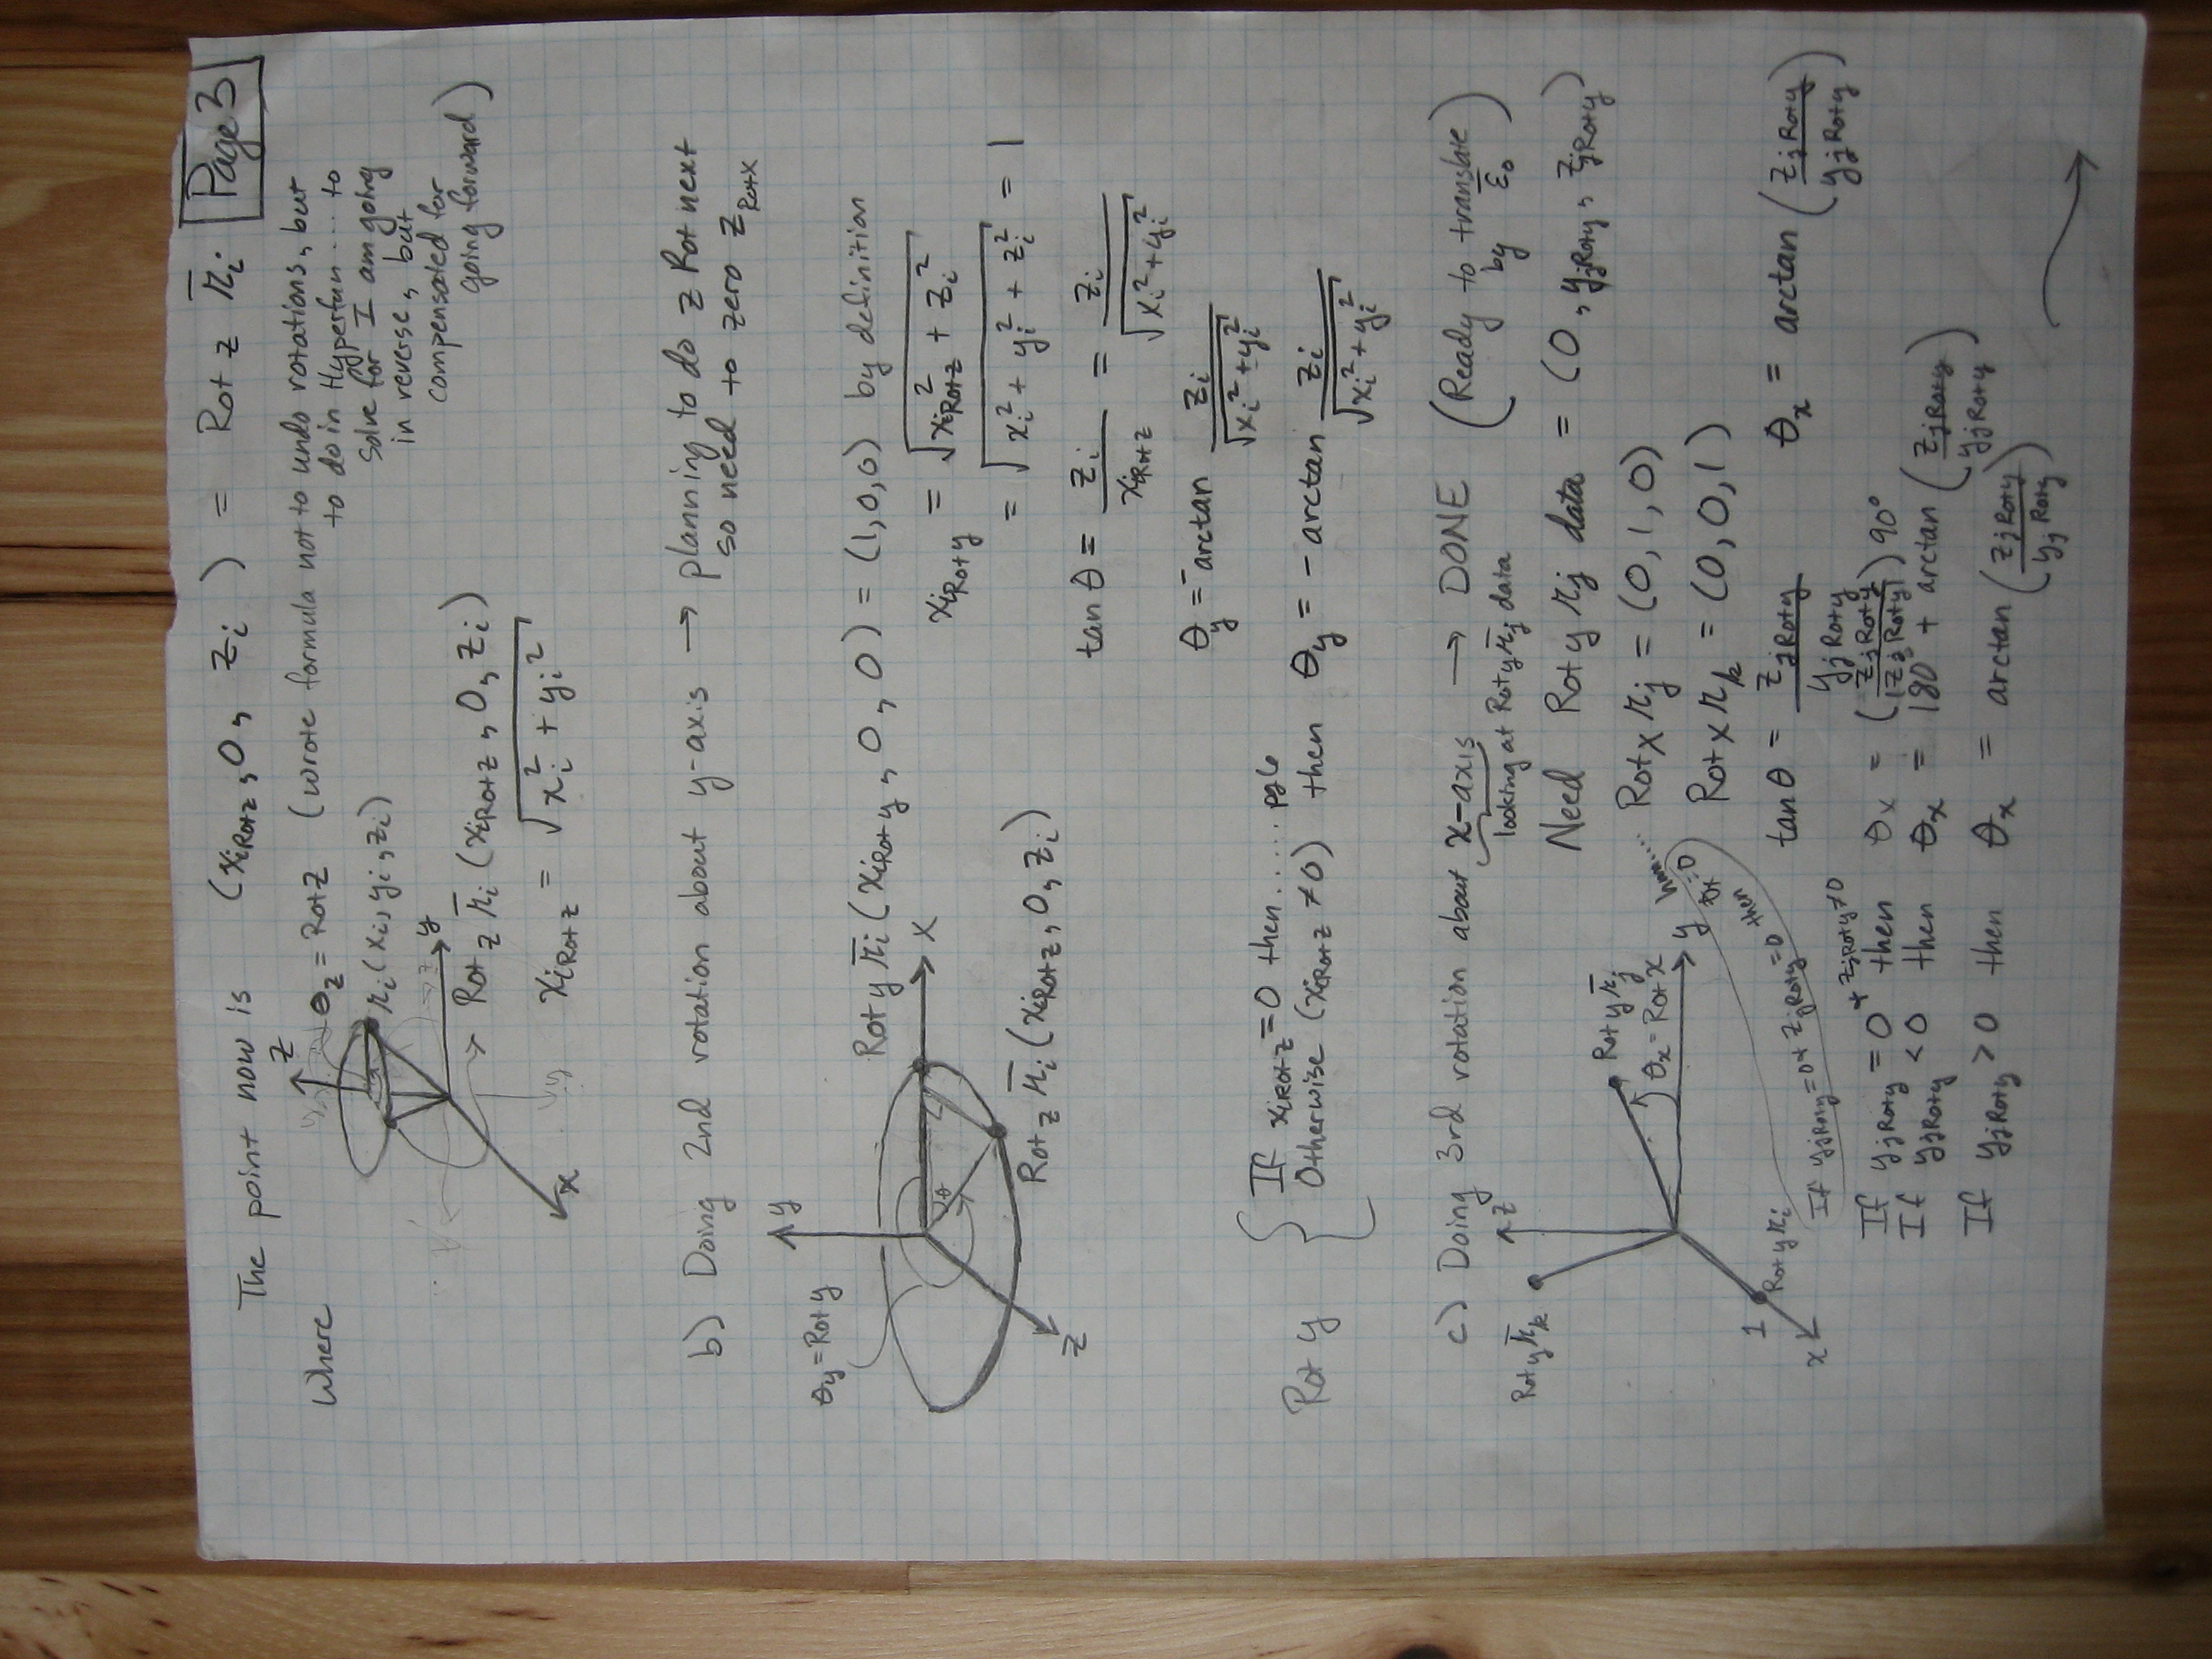 Page 3
The point now is (xiRotz, 0, zi) = Rot z r̄i
Where θz = Rotz (wrote formula not to undo rotations, but
to do in Hyperfun... to
solve for I am going
in reverse, but
compensated for
going forward)
z
r̄i (xi, yi, zi)
y
Rotz r̄i (xiRotz, 0, zi)
x
xiRotz = √(xi² + yi²)
b) Doing 2nd rotation about y-axis → planning to do z Rot next
so need to zero zRotx
θy = Rot y
y
Rot y r̄i (xiRoty, 0, 0) = (1, 0, 0) by definition
x
xiRoty = √(xiRotz² + zi²)
= √(xi² + yi² + zi²) = 1
θ
Rotz r̄i (xiRotz, 0, zi)
z
tan θ = zi / xiRotz = zi / √(xi² + yi²)
θy = -arctan zi / √(xi² + yi²)
Rot y { If xiRotz = 0 then..... pg 6
Otherwise (xiRotz ≠ 0) then θy = -arctan zi / √(xi² + yi²)
c) Doing 3rd rotation about x-axis → DONE (Ready to translate by ε̄0)
looking at Rot y r̄j data
Need Rot y rj data = (0, yjRoty, zjRoty)
Rot y r̄k
z
Rot y r̄j
θx = Rot x
y
Rot y r̄i
1
x
Rot x rj = (0, 1, 0)
Rot x rk = (0, 0, 1)
hmm....
If yjRoty = 0 + zjRoty = 0 then
tan θ = zjRoty / yjRoty
θx = arctan (zjRoty / yjRoty)
If yjRoty = 0 + zjRoty ≠ 0 then θx = (zjRoty / |zjRoty|) 90°
If yjRoty < 0 then θx = 180 + arctan (zjRoty / yjRoty)
If yjRoty > 0 then θx = arctan (zjRoty / yjRoty)